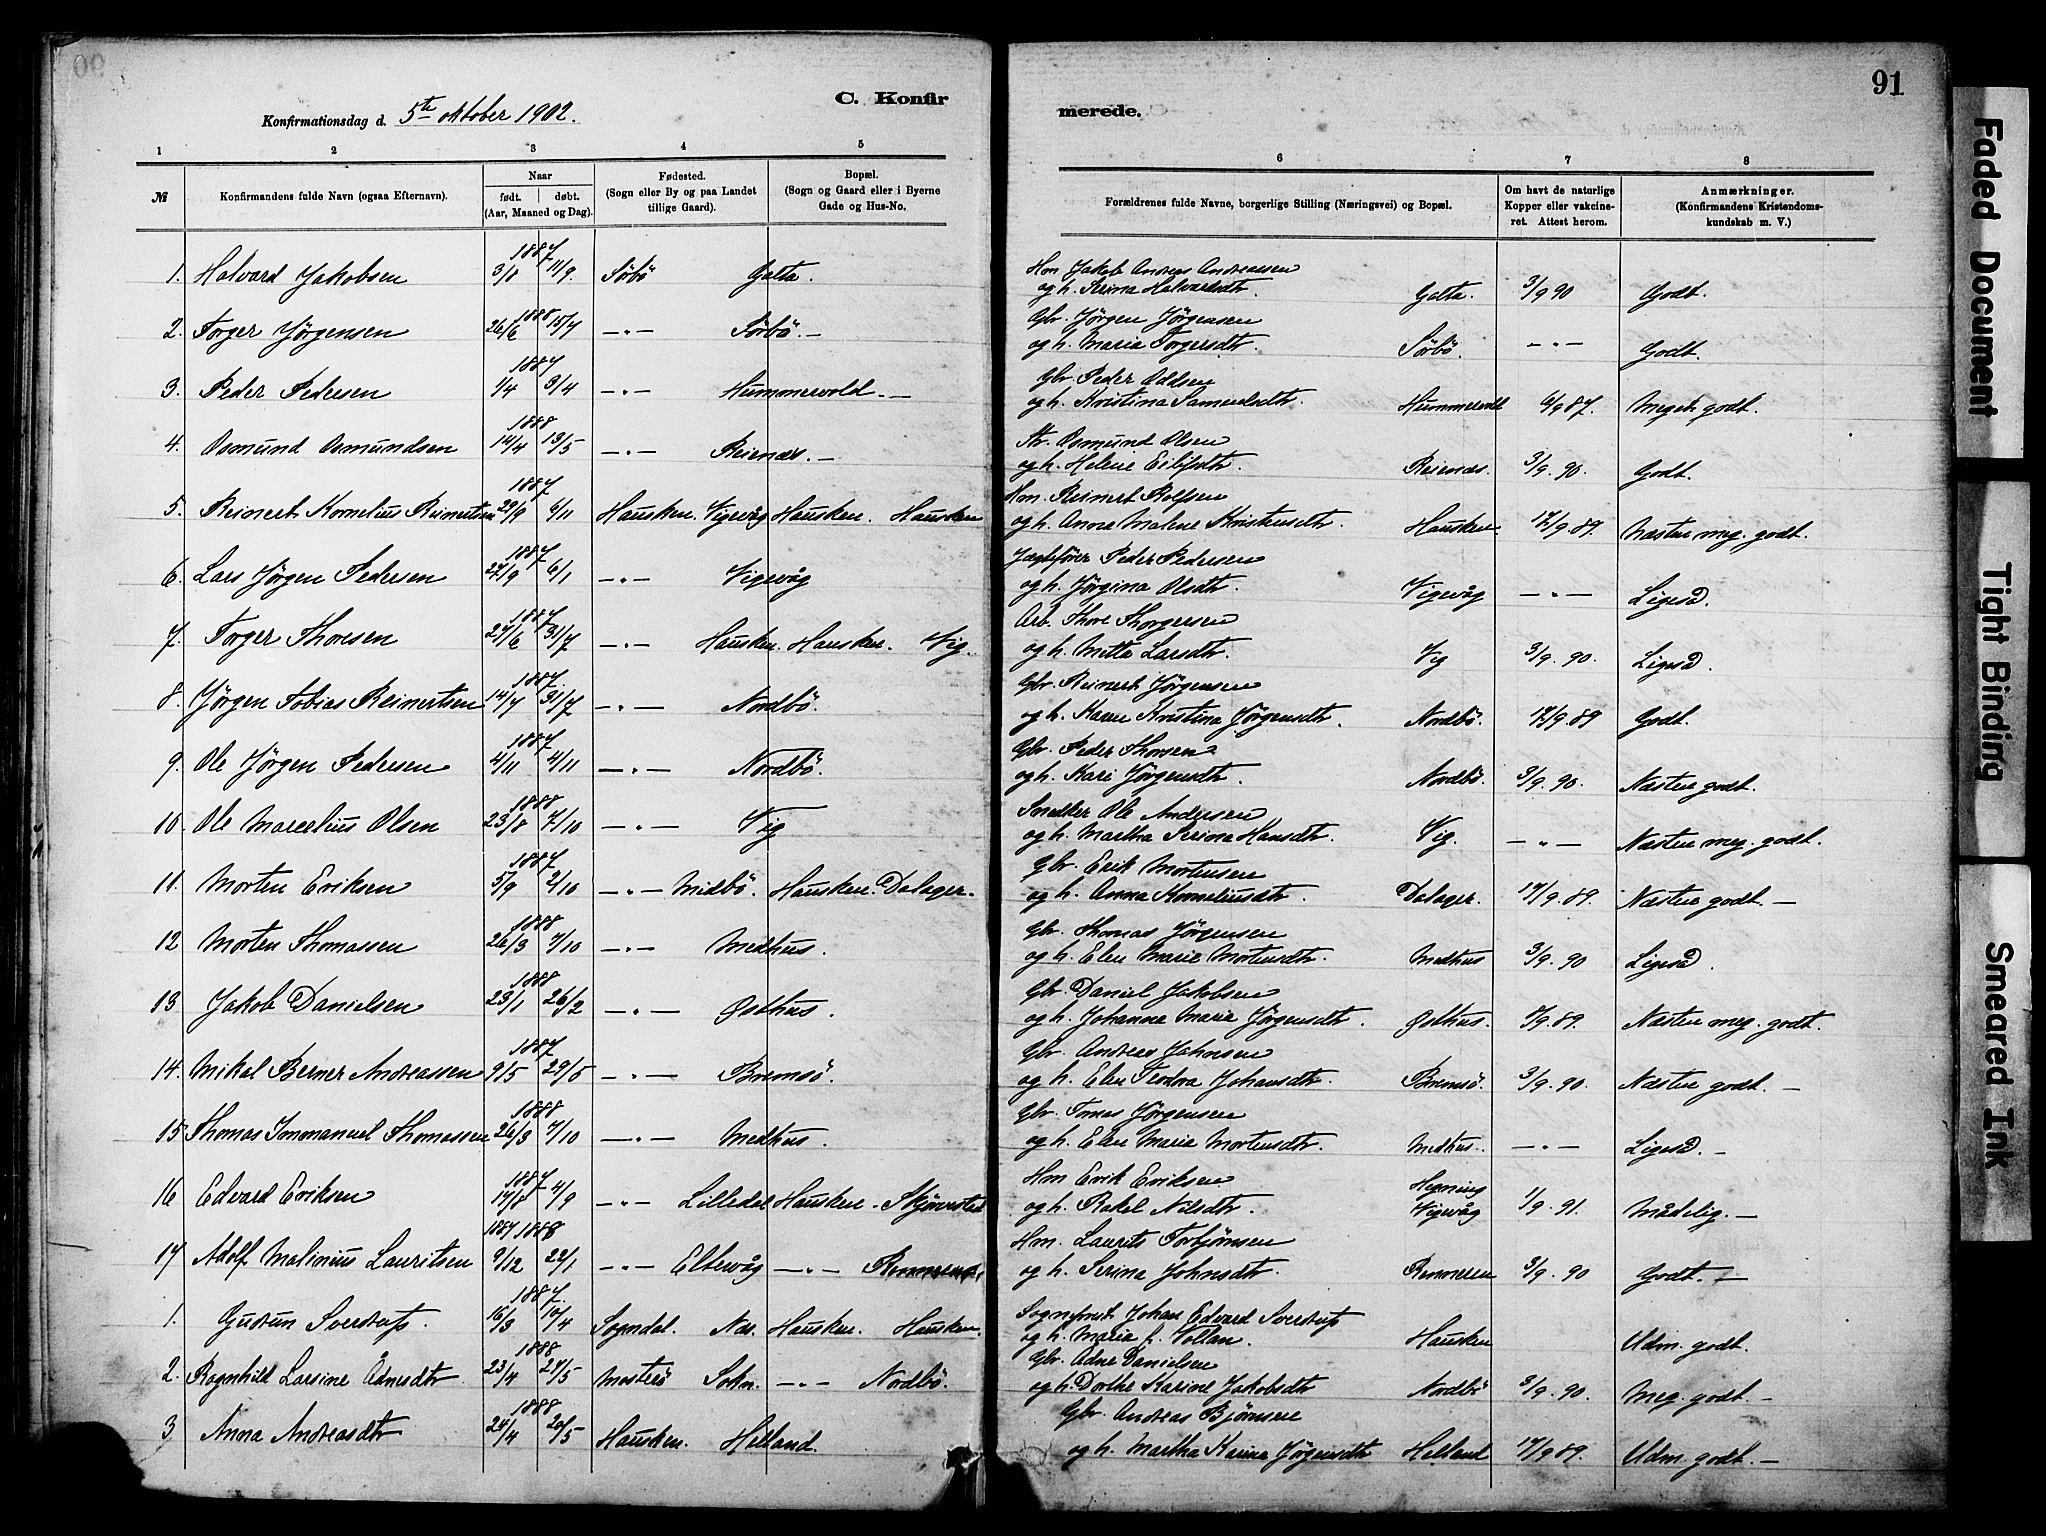 91
C. Konfir
merede.
Konfirmationsdag d. 5te oktober 1902.
1 2 3 4 5 6 7 8
№
Konfirmandens fulde Navn (ogsaa Efternavn).
Naar
født. døbt.
(Aar, Maaned og Dag).
Fødested.
(Sogn eller By og paa Landet
tillige Gaard).
Bopæl.
(Sogn og Gaard eller i Byerne
Gade og Hus-No.
Forældrenes fulde Navne, borgerlige Stilling (Næringsvei) og Bopæl.
Om havt de naturlige
Kopper eller vakcine-
ret. Attest herom.
Anmærkninger.
(Konfirmandens Kristendoms-
kundskab m. V.)
1887 Hm Jakob Andreas Andreassen
1. Halvard Jakobsen 3/8 11/9. Sørbö Galta. og h. Serina Halvardsdtr. Galta. 3/9 90 Godt.
1888 Gbr. Jørgen Jørgensen
2. Torger Jörgensen 26/6 15/7 —„— Sörbö. — og h. Maria Torgersdtr. Sörbö. —„— Godt.
1887 Gbr. Peder Oddsen
3. Peder Pedersen 1/4 3/4 —„— Hummervold. — og h. Kristina Samuelsdtr. Hummervold 6/9 87. Meget godt.
1888 Str. Osmund Olsen
4. Osmund Osmundsen 14/4 13/5 —„— Reienæs. — og h. Helene Eilifsdtr. Reienæs. 3/9. 90. Godt.
1887 Hm. Reinert Rolfsen
5. Reinert Kornelius Reinertsen 29/9 6/11 Hausken. Vigevåg Hausken. Hausken og h. Anna Malene Kristensdtr. Hausken. 17/9 89. Næsten meg. godt.
1887 Jægtefører Peder Pedersen
6. Lars Jörgen Pedersen 27/9 6/1 —„— Vigevåg og h. Jørgina Olsdtr. Vigevåg —„— Ligeså.
1887 Arb. Thore Thorgersen
7. Torger Thoresen 27/6 31/7 —„— Hausken. Hausken. Vig. og h. Mette Larsdtr. Vig 3/9. 90. Ligeså.
1887. Gbr. Reinert Jörgensen
8. Jörgen Tobias Reinertsen 14/7 31/7 —„— Nordbö. og h. Karen Kristina Jørgensdtr. Nordbö. 17/9. 89 Godt.
1887 Gbr. Peder Thorsen
9. Ole Jörgen Pedersen 4/11 4/11 —„— Nordbö. og h. Kari Jørgensdtr. Nordbö. 3/9. 90. Næsten godt.
1888 Snedker Ole Andersen
10. Ole Marcelius Olsen 23/8 7/10 —„— Vig og h. Martha Serina Hansdtr. Vig. —„— Næsten meg. godt.
1887 Gbr. Erik Mortensen
11. Morten Eriksen 5/9 2/10 —„— Midbö. Hausken. Dalager. og h. Anna Korneliusdtr. Dalager. 17/9. 89. Næsten godt. —
1888 Gbr. Thomas Jørgensen
12 Morten Thomassen 26/3 7/10 —„— Medhus. og h. Elen Marie Mortensdtr. Medhus 3/9. 90 Ligeså.
1888 Gbr. Daniel Jakobsen
13 Jakob Danielsen 23/1 26/2 —„— Østhus. og h. Johanna Maria Jørgensdtr. Østhus. 9/9. 89. Næsten meg. godt.
1887 Gbr. Andreas Johnsen
14. Mikal Berner Andreassen 9/5 29/5 —„— Bremsö. og h. Elen Teodora Johansdtr. Bremsö. 3/9. 90. Næsten godt. —
1888 Gbr. Tomas Jörgensen
15. Thomas Immanuel Thomassen 26/3 7/10 —„— Medhus. og h. Elen Maria Mortensdtr. Medhus. —„— Ligeså. —
1887 Hm Erik Eriksen Hegning
16 Edvard Eriksen 17/8 4/9 —„— Lilledal Hausken. og h. Rakel Nilsdtr. Vigevåg 1/9. 91. Mådelig. —
1887 1888 Hm. Laurits Torbjørnsen
17 Adolf Malinius Lauritsen 9/12 22/1 —„— Eltevåg —„— og h. Serina Johnsdtr. Renneren 3/9. 90 Godt. —
1887. Sogneprest Johan Edvard Sverdrup
1. Gudrun Sverdrup. 16/3 10/4 Sogndal. Nes. Hausken. Hausken. og h. Maria f. Vollan. Hausken Udm. godt.
1888 Gbr. Adne Danielsen
2. Ragnhild Larsine Ådnesdtr 23/4 27/5 Mosterö Sokn. —„— Nordbö. og h. Dorthe Karine Jakobsdtr Nordbö 3/9. 90. Meg. godt. —
1888 Gbr. Andreas Bjørnsen
3 Anna Andreasdtr 24/4 20/5 Hausken. Helland. og h. Martha Karina Jørgensdtr Helland 17/9 89. Udm. godt. —
Faded Document
Tight Binding
Smeared Ink